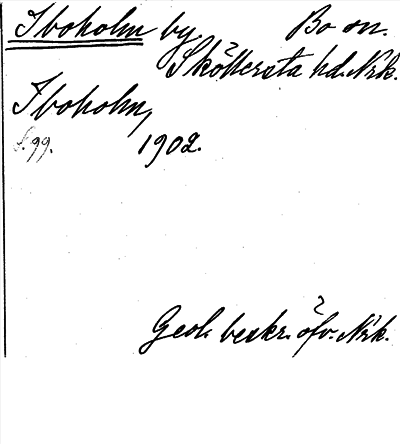 Iboholm by Bo sn.
Sköllersta hd. Nrk.
Iboholm,
s. 99. 1902.
Geol. beskr. öfv. Nrk.